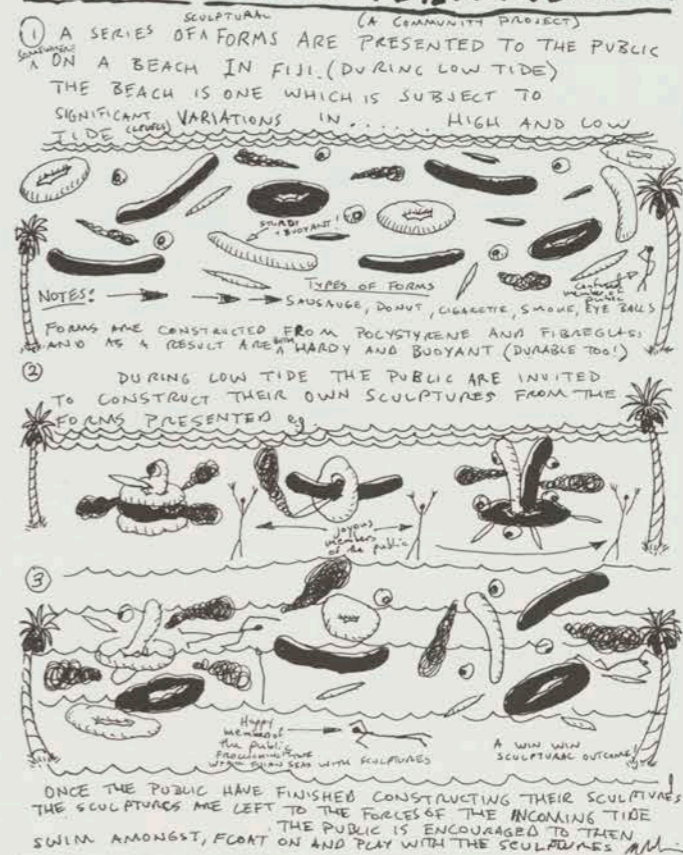 (A COMMUNITY PROJECT)
SCULPTURAL
① A SERIES OF ^ FORMS ARE PRESENTED TO THE PUBLIC
SOMEWHERE
^ ON A BEACH IN FIJI. (DURING LOW TIDE)
THE BEACH IS ONE WHICH IS SUBJECT TO
SIGNIFICANT VARIATIONS IN ...... HIGH AND LOW
TIDE (LEVELS)
STURDY + BUOYANT!
TYPES OF FORMS
confused
member of
public
NOTES:
SAUSAUGE, DONUT, CIGARETTE, SMOKE, EYE BALLS
FORMS ARE CONSTRUCTED FROM POLYSTYRENE AND FIBREGLASS
AND AS A RESULT ARE BOTH ^ HARDY AND BUOYANT (DURABLE TOO!)
②
DURING LOW TIDE THE PUBLIC ARE INVITED
TO CONSTRUCT THEIR OWN SCULPTURES FROM THE
FORMS PRESENTED eg.
joyous
members
of the public
③
Happy
member of
the public
FROLICKING IN THE
WARM FIJIAN SEAS WITH SCULPTURES
A WIN WIN
SCULPTURAL OUTCOME!
ONCE THE PUBLIC HAVE FINISHED CONSTRUCTING THEIR SCULPTURES
THE SCULPTURES ARE LEFT TO THE FORCES OF THE INCOMING TIDE
THE PUBLIC IS ENCOURAGED TO THEN
SWIM AMONGST, FLOAT ON AND PLAY WITH THE SCULPTURES